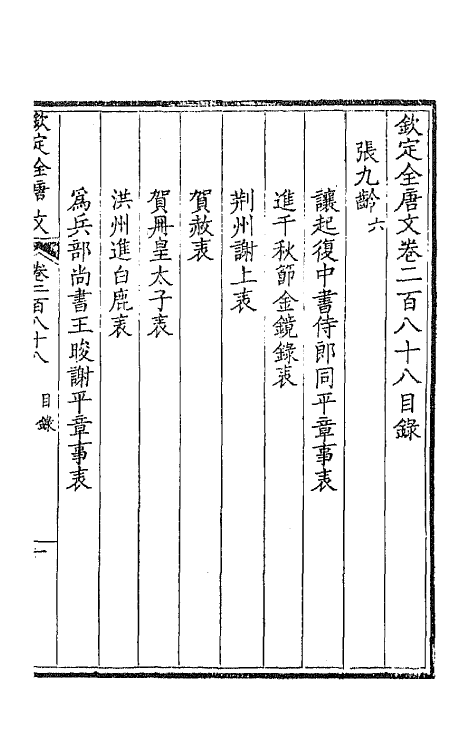 欽定全唐文卷二百八十八目錄
張九齡六
讓起復中書侍郎同平章事表
進千秋節金鏡錄表
荆州謝上表
賀赦表
賀冊皇太子表
洪州進白鹿表
爲兵部尚書王晙謝平章事表
欽定全唐文 卷二百八十八 目錄 一